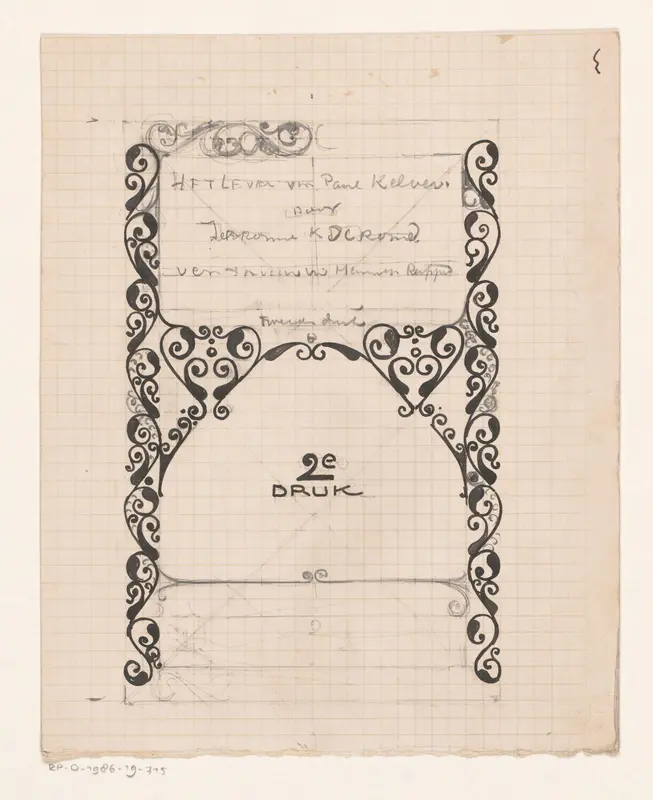 HET LEVEN van Paul Kelver.
DOOR
Jerome K Jerome.
Tweede druk
2e
DRUK
2
RP-D-1986-19-715